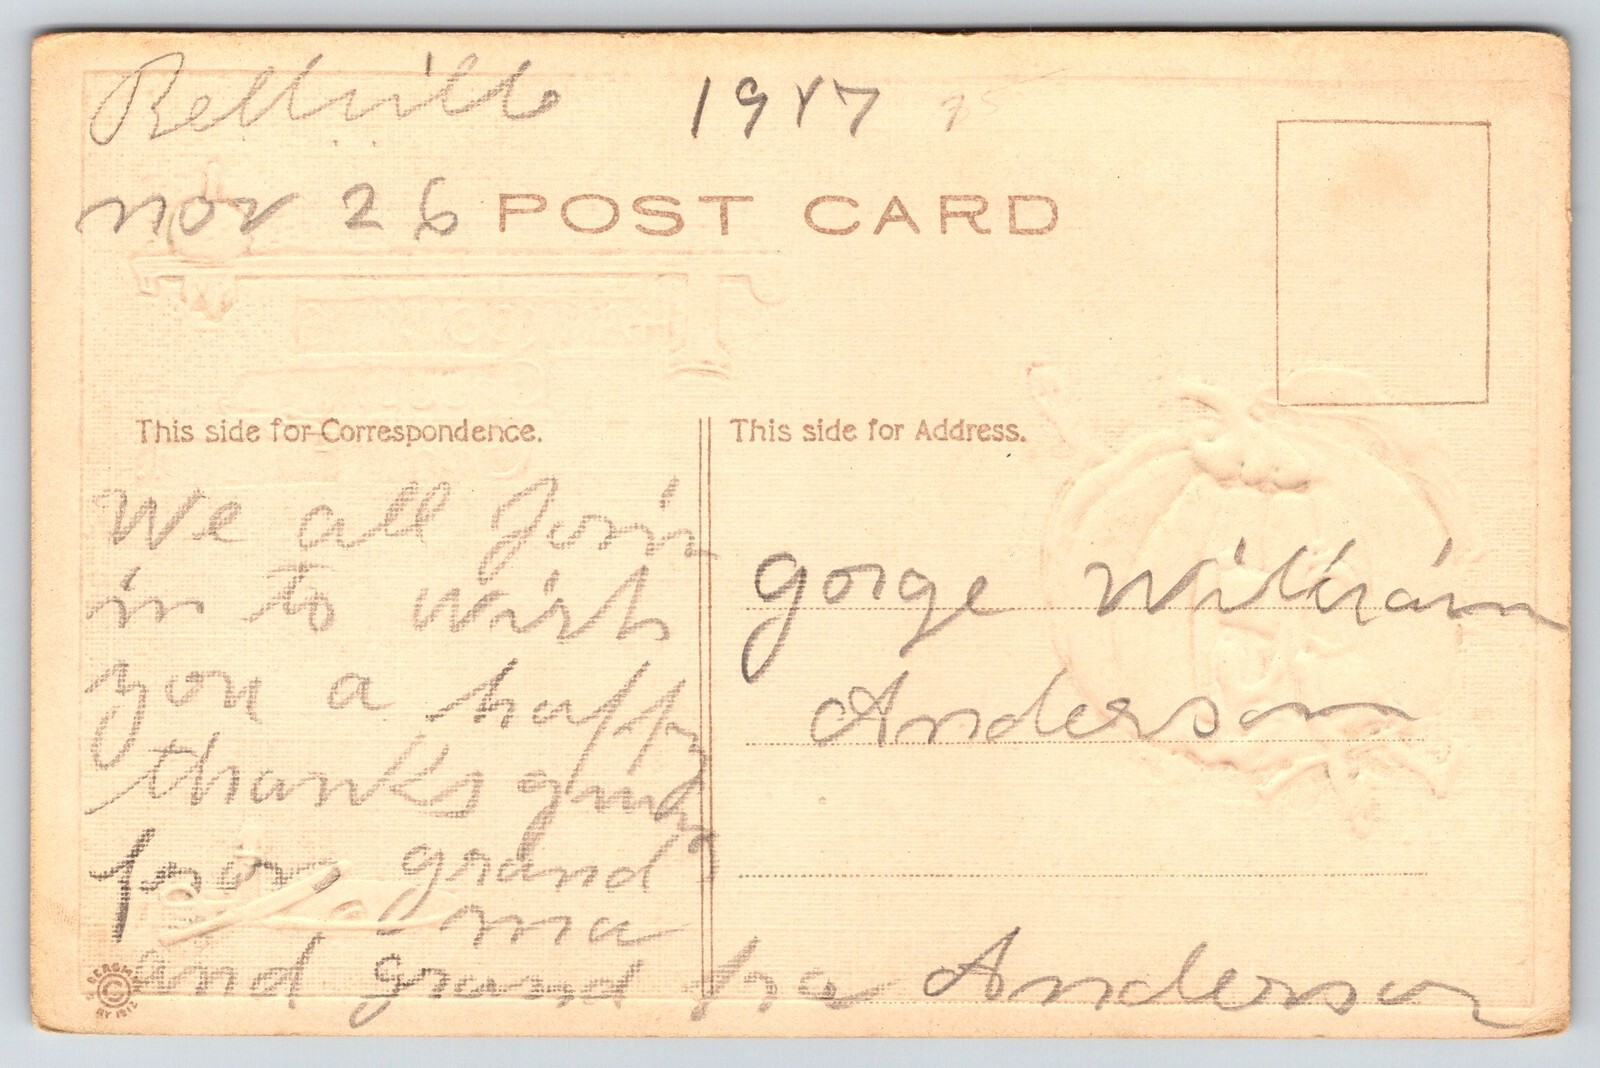 Bellville 1917 75
nov 26 POST CARD
This side for Correspondence.
This side for Address.
We all Join
in to wish
you a happy
thanks giving
from grand
ma
and grand pa Anderson
gorge William
Anderson